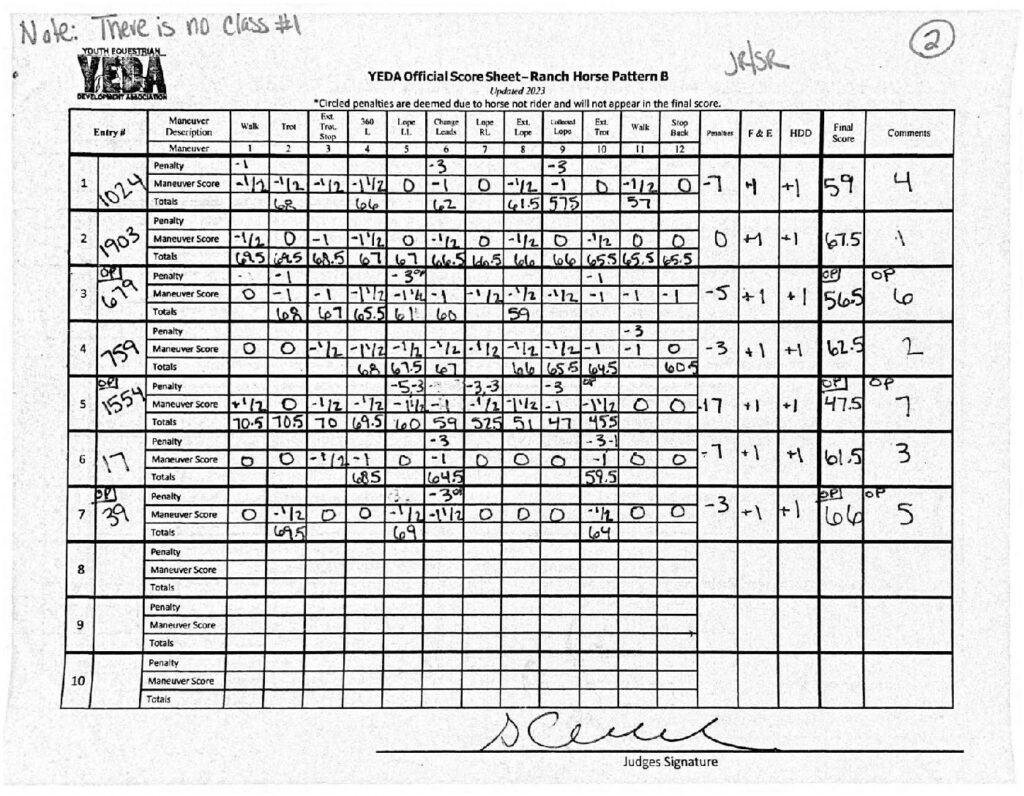 Note: There is no class #1
2
JR/SR
YOUTH EQUESTRIAN
YEDA
DEVELOPMENT ASSOCIATION
YEDA Official Score Sheet – Ranch Horse Pattern B
Updated 2023
*Circled penalties are deemed due to horse not rider and will not appear in the final score.
Entry # Maneuver Description Walk Trot Ext. Trot, Stop 360 L Lope LL Change Leads Lope RL Ext. Lope Collected Lope Ext. Trot Walk Stop Back Penalties F & E HDD Final Score Comments
Maneuver 1 2 3 4 5 6 7 8 9 10 11 12
1 1024 Penalty -1 -3 -3
Maneuver Score -1/2 -1/2 -1/2 -1 1/2 0 -1 0 -1/2 -1 0 -1/2 0 -7 +1 +1 59 4
Totals 68 66 62 61.5 575 57
2 1903 Penalty
Maneuver Score -1/2 0 -1 -1 1/2 0 -1/2 0 -1/2 0 -1/2 0 0 0 +1 +1 67.5 1
Totals 69.5 69.5 68.5 67 67 66.5 66.5 66 66 65.5 65.5 65.5
OP OP OP
3 679 Penalty -1 -3 OP -1
Maneuver Score 0 -1 -1 -1 1/2 -1 1/2 -1 -1/2 -1/2 -1/2 -1 -1 -1 -5 +1 +1 56.5 6
Totals 68 67 65.5 61 60 59
4 759 Penalty -3
Maneuver Score 0 0 -1/2 -1 1/2 -1/2 -1/2 -1/2 -1/2 -1/2 -1 -1 0 -3 +1 +1 62.5 2
Totals 68 67.5 67 66 65.5 64.5 60.5
OP OP OP
5 1554 Penalty -5,-3 -3,-3 -3 OP
Maneuver Score +1/2 0 -1/2 -1/2 -1 1/2 -1 -1 1/2 -1 1/2 -1 -1 1/2 0 0 -17 +1 +1 47.5 7
Totals 70.5 70.5 70 69.5 60 59 525 51 47 455
6 17 Penalty -3 -3-1
Maneuver Score 0 0 -1/2 -1 0 -1 0 0 0 -1 0 0 -7 +1 +1 61.5 3
Totals 68.5 64.5 59.5
OP OP OP
7 39 Penalty -3 OP
Maneuver Score 0 -1/2 0 0 -1/2 -1 1/2 0 0 0 -1/2 0 0 -3 +1 +1 66 5
Totals 69.5 69 64
8 Penalty
Maneuver Score
Totals
9 Penalty
Maneuver Score
Totals
10 Penalty
Maneuver Score
Totals
Judges Signature